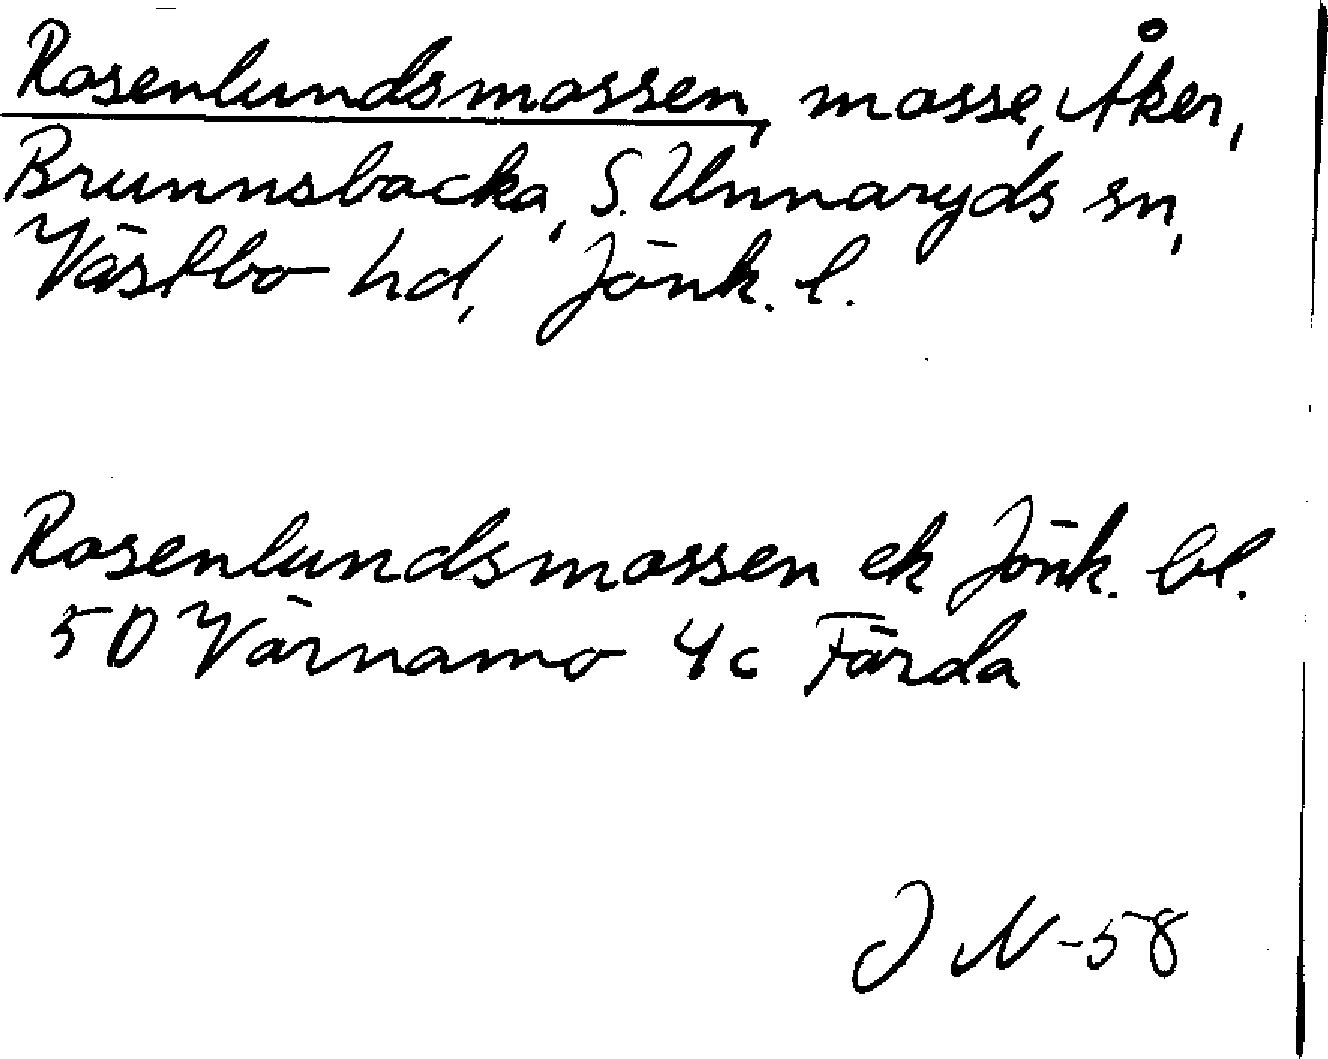 Rosenlundsmossen, mosse, Åker,
Brunnsbacka, S. Unnaryds sn,
Västbo hd, Jönk. l.
Rosenlundsmossen ek Jönk. bl.
5D Värnamo 4c Färda
JN-58